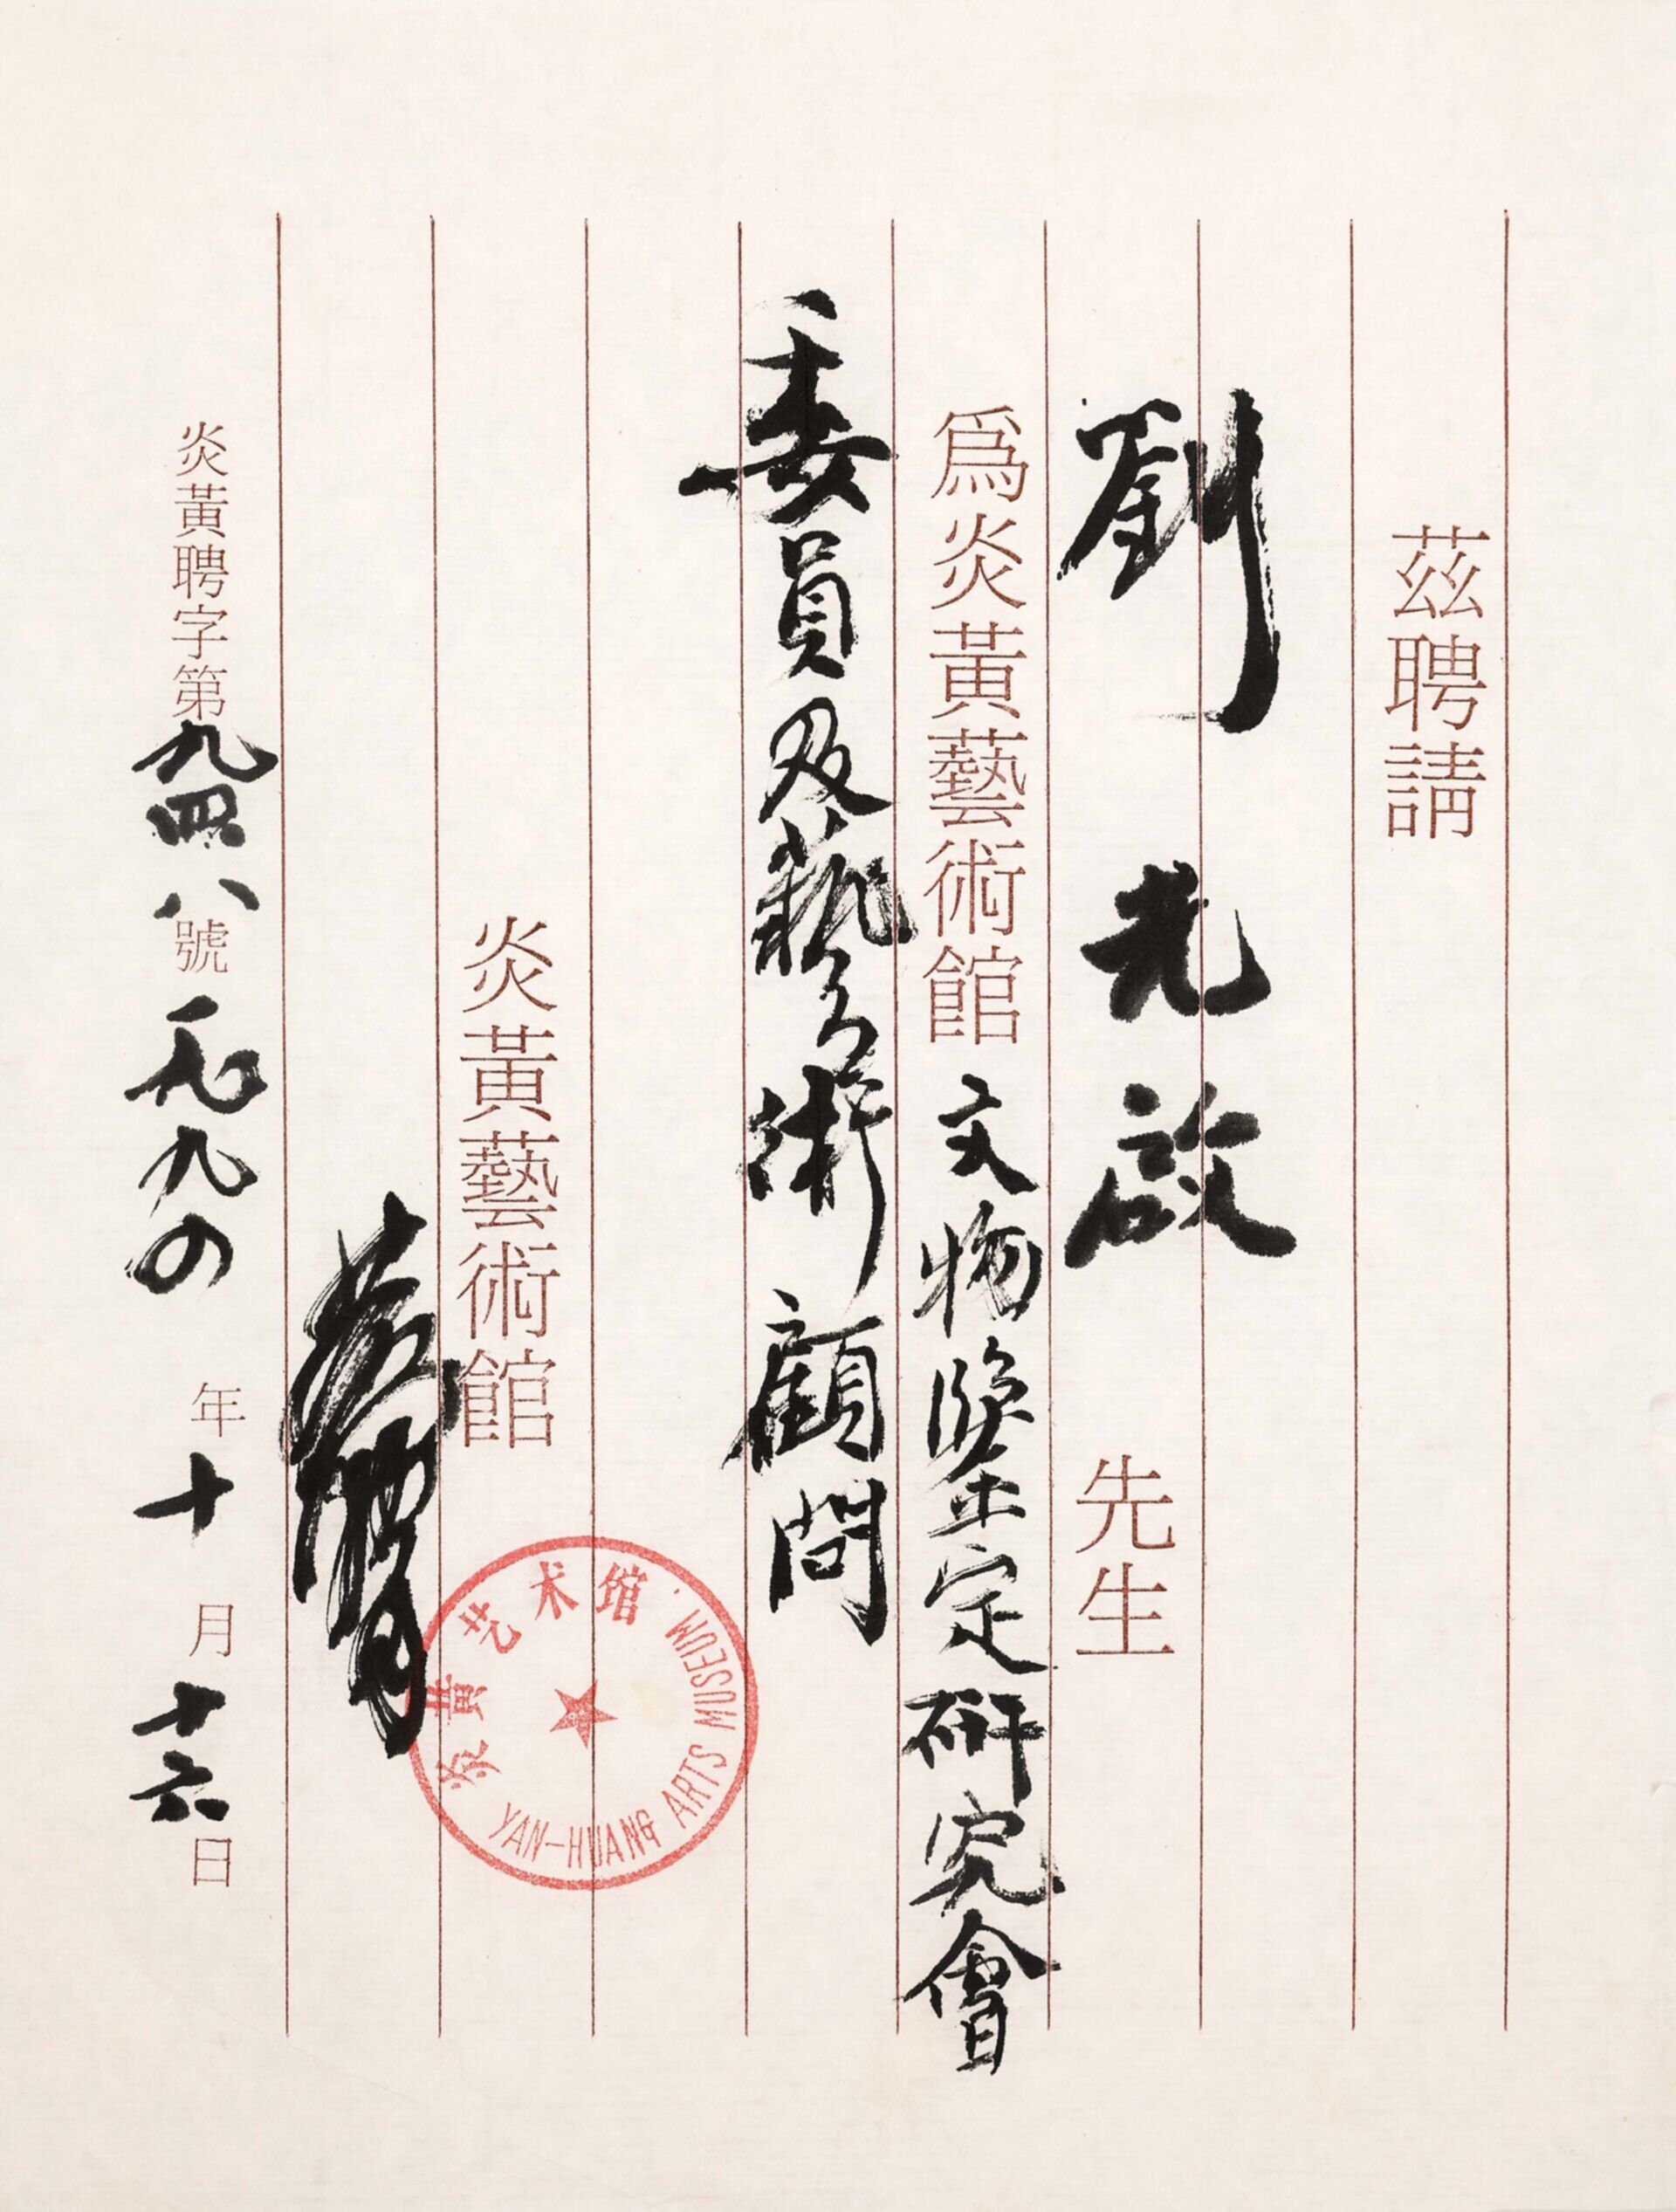 茲聘請
劉光啟 先生
爲炎黃藝術館文物鑒定研究會
委員及藝術顧問
炎黃藝術館
黃胄
炎黃聘字第九四八號 一九九四年十月十六日
炎黄艺术馆
YAN-HUANG ARTS MUSEUM